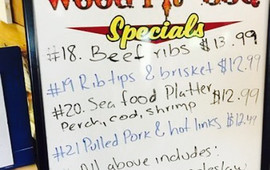 Wood Pit BBQ
Specials
#18. Beef ribs $13.99
#19 Rib tips & brisket $12.99
#20. Sea food Platter $12.99
Perch, cod, shrimp
#21 Pulled Pork & hot links $12.49
All above includes:
coleslaw